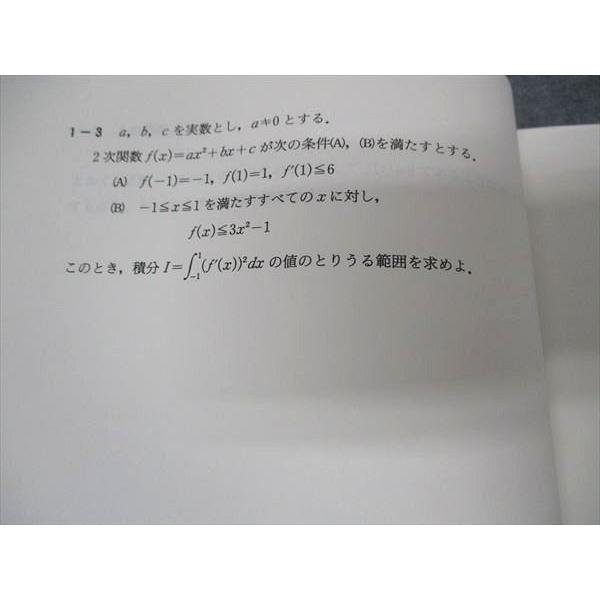 1－3 a，b，c を実数とし，a≠0 とする．
2次関数 f(x)=ax²+bx+c が次の条件(A)，(B)を満たすとする．
(A) f(−1)=−1，f(1)=1，f′(1)≦6
(B) −1≦x≦1 を満たすすべての x に対し，
f(x)≦3x²−1
このとき，積分 I=∫₋₁¹(f′(x))²dx の値のとりうる範囲を求めよ．